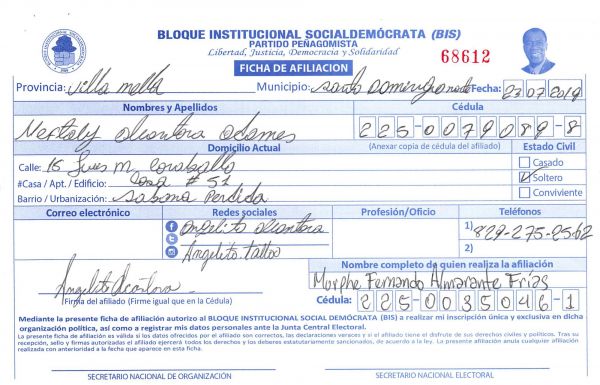 BLOQUE INSTITUCIONAL SOCIALDEMÓCRATA (BIS)
PARTIDO PEÑAGOMISTA
Libertad, Justicia, Democracia y Solidaridad
68612
FICHA DE AFILIACION
Provincia: Villa mella Municipio: Santo Domingo norte Fecha: 23 07 2019
Nombres y Apellidos Cédula
Neftaly Alcantara Adames 225-0079089-8
Domicilio Actual (Anexar copia de cédula del afiliado) Estado Civil
Calle: 16 Luis M. Caraballo Casado
#Casa / Apt. / Edificio: Casa # 51 Soltero
Barrio / Urbanización: Sabana Perdida Conviviente
Correo electrónico Redes sociales Profesión/Oficio Teléfonos
Angelito alcantara 1) 829-275-2562
Angelito Tattoo 2)
Nombre completo de quien realiza la afiliación
Angelito Alcantara Morphe Fernando Almarante Frías
Firma del afiliado (Firme igual que en la Cédula) Cédula: 225-0035046-1
Mediante la presente ficha de afiliación autorizo al BLOQUE INSTITUCIONAL SOCIAL DEMÓCRATA (BIS) a realizar mi inscripción única y exclusiva en dicha
organización política, así como a registrar mis datos personales ante la Junta Central Electoral.
La presente ficha de afiliación es válida si los datos ofrecidos por el afiliado son correctos, las declaraciones veraces y si el afiliado tiene el disfrute de sus derechos civiles y políticos. Tras su
recepción, sello y firmas autorizadas el afiliado ejercerá todos los derechos y los deberes estatutariamente sancionados, de acuerdo a la ley. La presente afiliación anula cualquier afiliación
realizada con anterioridad a la fecha que aparece en esta ficha.
SECRETARIO NACIONAL DE ORGANIZACIÓN SECRETARIO NACIONAL ELECTORAL